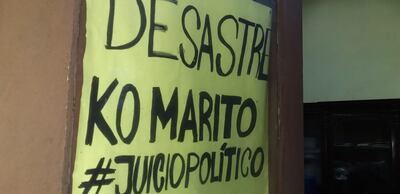 DESASTRE
KO MARITO
#JUICIOPOLÍTICO